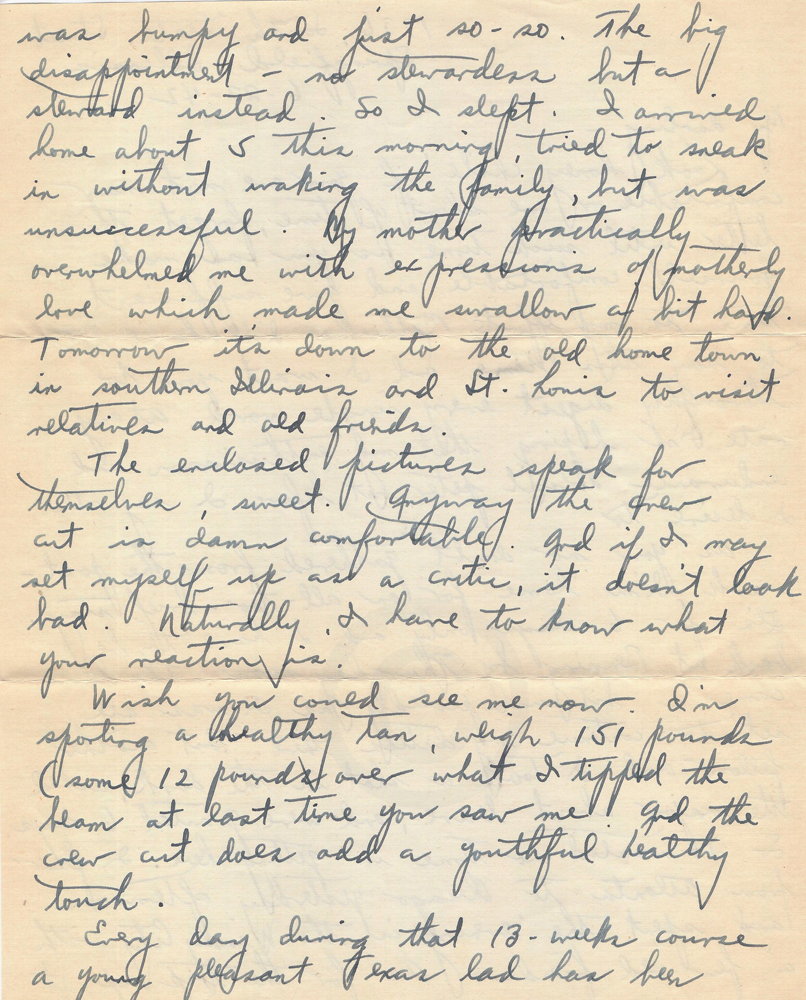 was bumpy and just so-so. The big
disappointment - no stewardess but a
steward instead. So I slept. I arrived
home about 5 this morning, tried to sneak
in without waking the family, but was
unsuccessful. My mother practically
overwhelmed me with expressions of motherly
love which made me swallow a bit hard.
Tomorrow it's down to the old home town
in southern Illinois and St. Louis to visit
relatives and old friends.
The enclosed pictures speak for
themselves, sweet. Anyway the crew
cut is damn comfortable. And if I may
set myself up as a critic, it doesn't look
bad. Naturally, I have to know what
your reaction is.
Wish you could see me now. I'm
sporting a healthy tan, weigh 151 pounds
(some 12 pounds over what I tipped the
beam at last time you saw me. And the
crew cut does add a youthful healthy
touch.
Every day during that 13-weeks course
a young pleasant Texas lad has been